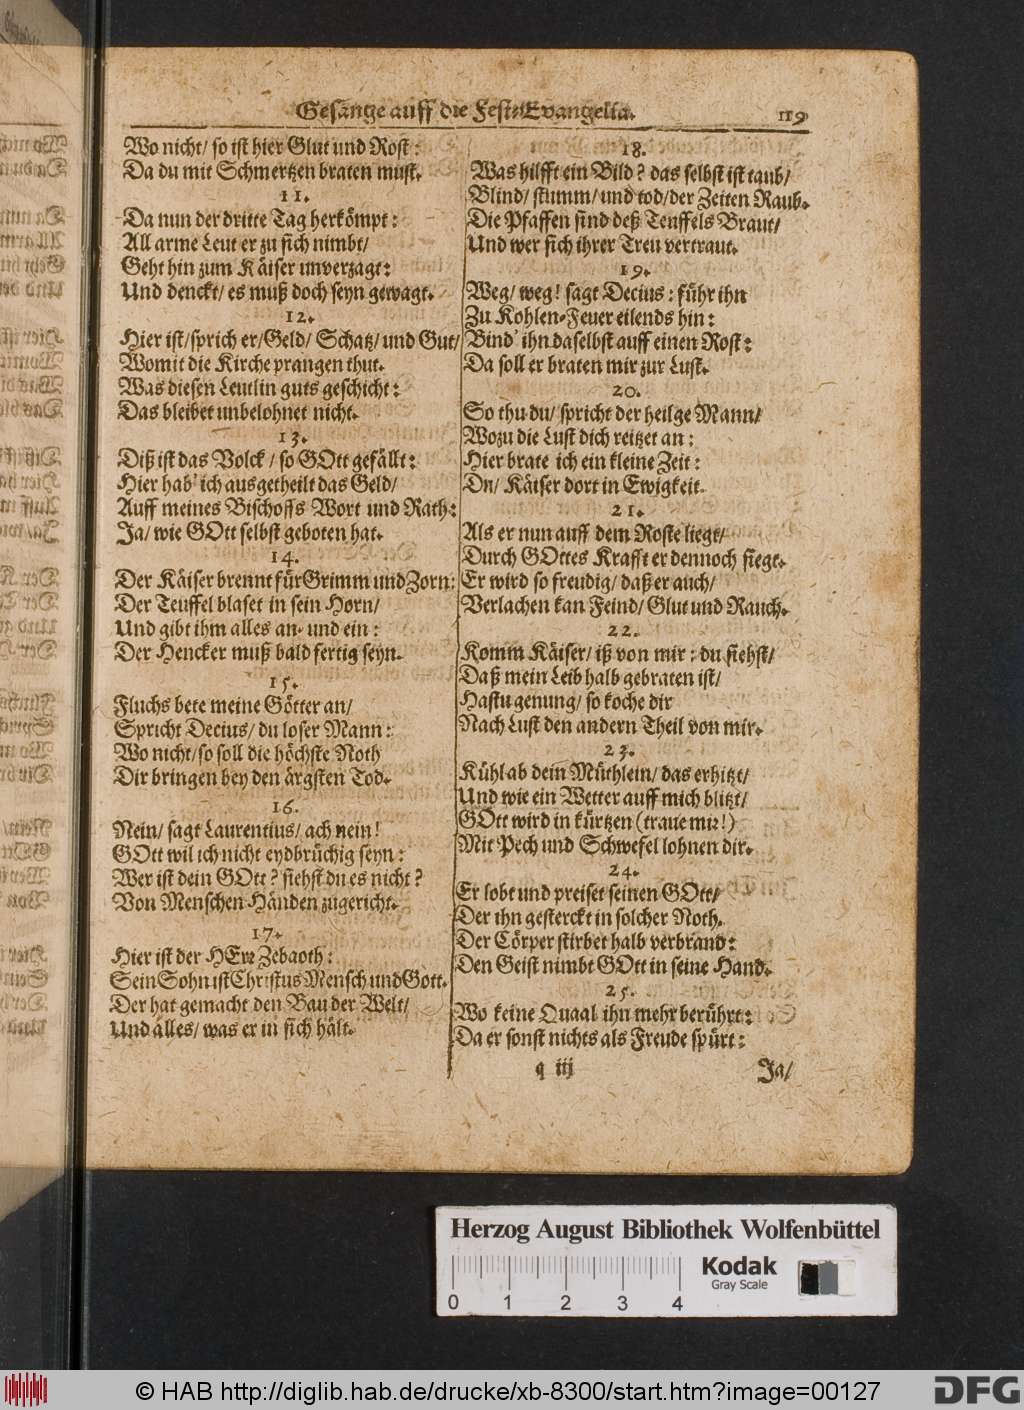 Gesänge auff die Fest-Evangelia. 119.
Wo nicht/ so ist hier Glut und Rost:
Da du mit Schmertzen braten must.
11.
Da nun der dritte Tag herkömpt:
All arme Leut er zu sich nimbt/
Geht hin zum Käiser unverzagt:
Und denckt/ es muß doch seyn gewagt.
12.
Hier ist/ sprich er/ Geld/ Schatz/ und Gut/
Womit die Kirche prangen thut.
Was diesen Leutlin guts geschicht:
Das bleibet unbelohnet nicht.
13.
Diß ist das Volck/ so GOtt gefällt:
Hier hab' ich ausgetheilt das Geld/
Auff meines Bischoffs Wort und Rath:
Ja/ wie GOtt selbst geboten hat.
14.
Der Käiser brennt für Grimm und Zorn:
Der Teuffel blaset in sein Horn/
Und gibt ihm alles an- und ein:
Der Hencker muß bald fertig seyn.
15.
Fluchs bete meine Götter an/
Spricht Decius/ du loser Mann:
Wo nicht/ so soll die höchste Noth
Dir bringen bey den ärgsten Tod.
16.
Nein/ sagt Laurentius/ ach nein!
GOtt wil ich nicht eydbrüchig seyn:
Wer ist dein GOtt? siehst du es nicht?
Von Menschen Händen zugericht.
17.
Hier ist der HErr Zebaoth:
Sein Sohn ist Christus Mensch und Gott.
Der hat gemacht den Bau der Welt/
Und alles/ was er in sich hält.
18.
Was hilfft ein Bild? das selbst ist taub/
Blind/ stumm/ und tod/ der Zeiten Raub.
Die Pfaffen sind deß Teuffels Braut/
Und wer sich ihrer Treu vertraut.
19.
Weg/ weg! sagt Decius: führ ihn
Zu Kohlen-Feuer eilends hin:
Bind' ihn daselbst auff einen Rost:
Da soll er braten mir zur Lust.
20.
So thu du/ spricht der heilge Mann/
Wozu die Lust dich reitzet an:
Hier brate ich ein kleine Zeit:
Du/ Käiser dort in Ewigkeit.
21.
Als er nun auff dem Roste liegt/
Durch GOttes Krafft er dennoch siegt.
Er wird so freudig/ daß er auch/
Verlachen kan Feind/ Glut und Rauch.
22.
Komm Käiser/ iß von mir: du siehst/
Daß mein Leib halb gebraten ist/
Hastu genung/ so koche dir
Nach Lust den andern Theil von mir.
23.
Kühl ab dein Müthlein/ das erhitzt/
Und wie ein Wetter auff mich blitzt/
GOtt wird in kürtzen (traue mir!)
Mit Pech und Schwefel lohnen dir.
24.
Er lobt und preiset seinen GOtt/
Der ihn gesterckt in solcher Noth.
Der Cörper stirbet halb verbrand:
Den Geist nimbt GOtt in seine Hand.
25.
Wo keine Quaal ihn mehr berührt:
Da er sonst nichts als Freude spürt:
q iij Ja/
Herzog August Bibliothek Wolfenbüttel
Kodak
Gray Scale
0 1 2 3 4
© HAB http://diglib.hab.de/drucke/xb-8300/start.htm?image=00127
DFG